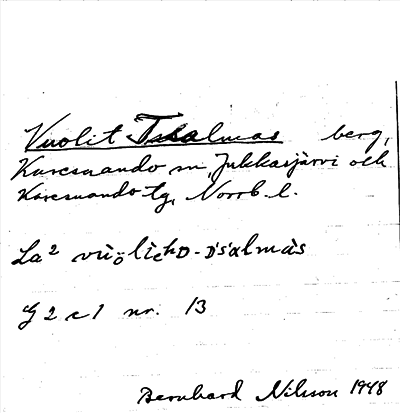 Vuolit Tsalmas berg,
Karesuando sn, Jukkasjärvi och
Karesuando tg, Norrb. l.
La²
G 2 c 1 nr. 13
Bernhard Nilsson 1948